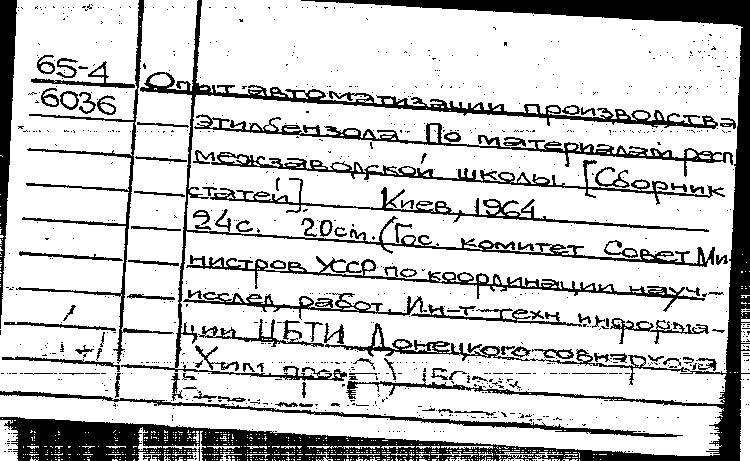 65-4
6036
Опыт автоматизации производства
этилбензола. По материалам респ.
межзаводской школы. [Сборник
статей]. Киев, 1964.
24с. 20см. (Гос. комитет Совет Ми-
нистров УССР по координации науч.-
исслед. работ. Ин-т техн информа-
ции ЦБТИ Донецкого совнархоза
Хим. пром) 150экз